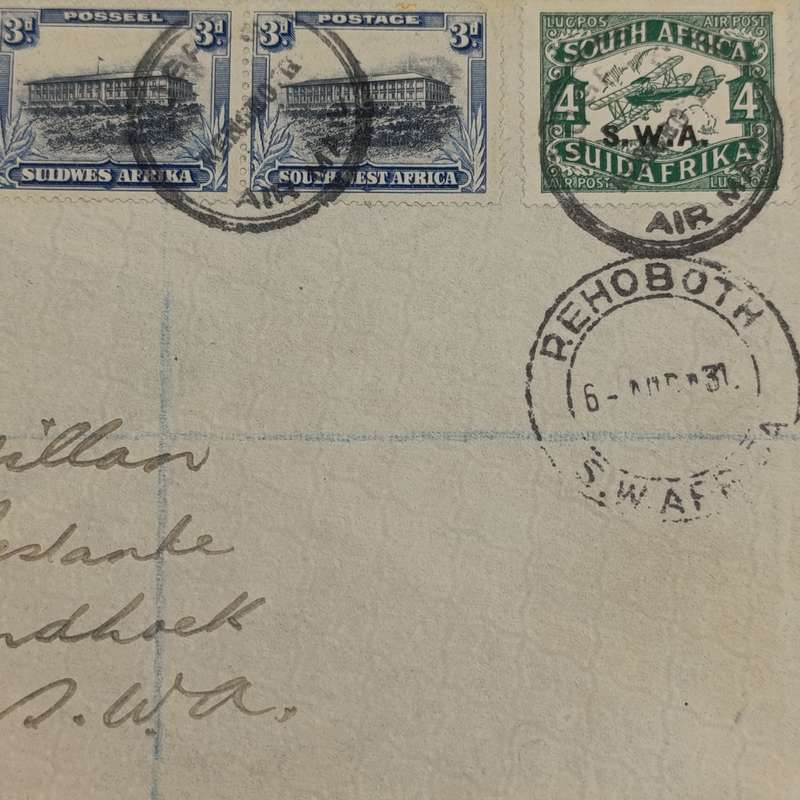 POSSEEL
3d 3d
SUIDWES AFRIKA
POSTAGE
3d 3d
SOUTH WEST AFRICA
LUGPOS AIR POST
SOUTH AFRICA
4D 4D
S.W.A.
SUIDAFRIKA
AIR POST
AIR
REHOBOTH
6- 31.
S.W AFRICA
illan
ndhoek
S.W.A.